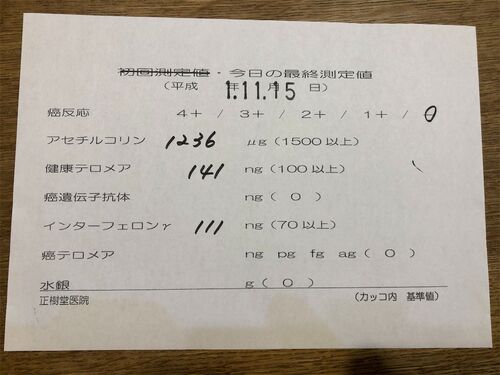 初回測定値・今日の最終測定値
(平成 年 月 日)
1.11.15
癌反応 4+ / 3+ / 2+ / 1+ / 0
アセチルコリン 1236 μg(1500以上)
健康テロメア 141 ng(100以上)
癌遺伝子抗体 ng(0)
インターフェロンγ 111 ng(70以上)
癌テロメア ng pg fg ag(0)
水銀 g(0)
正樹堂医院 (カッコ内 基準値)